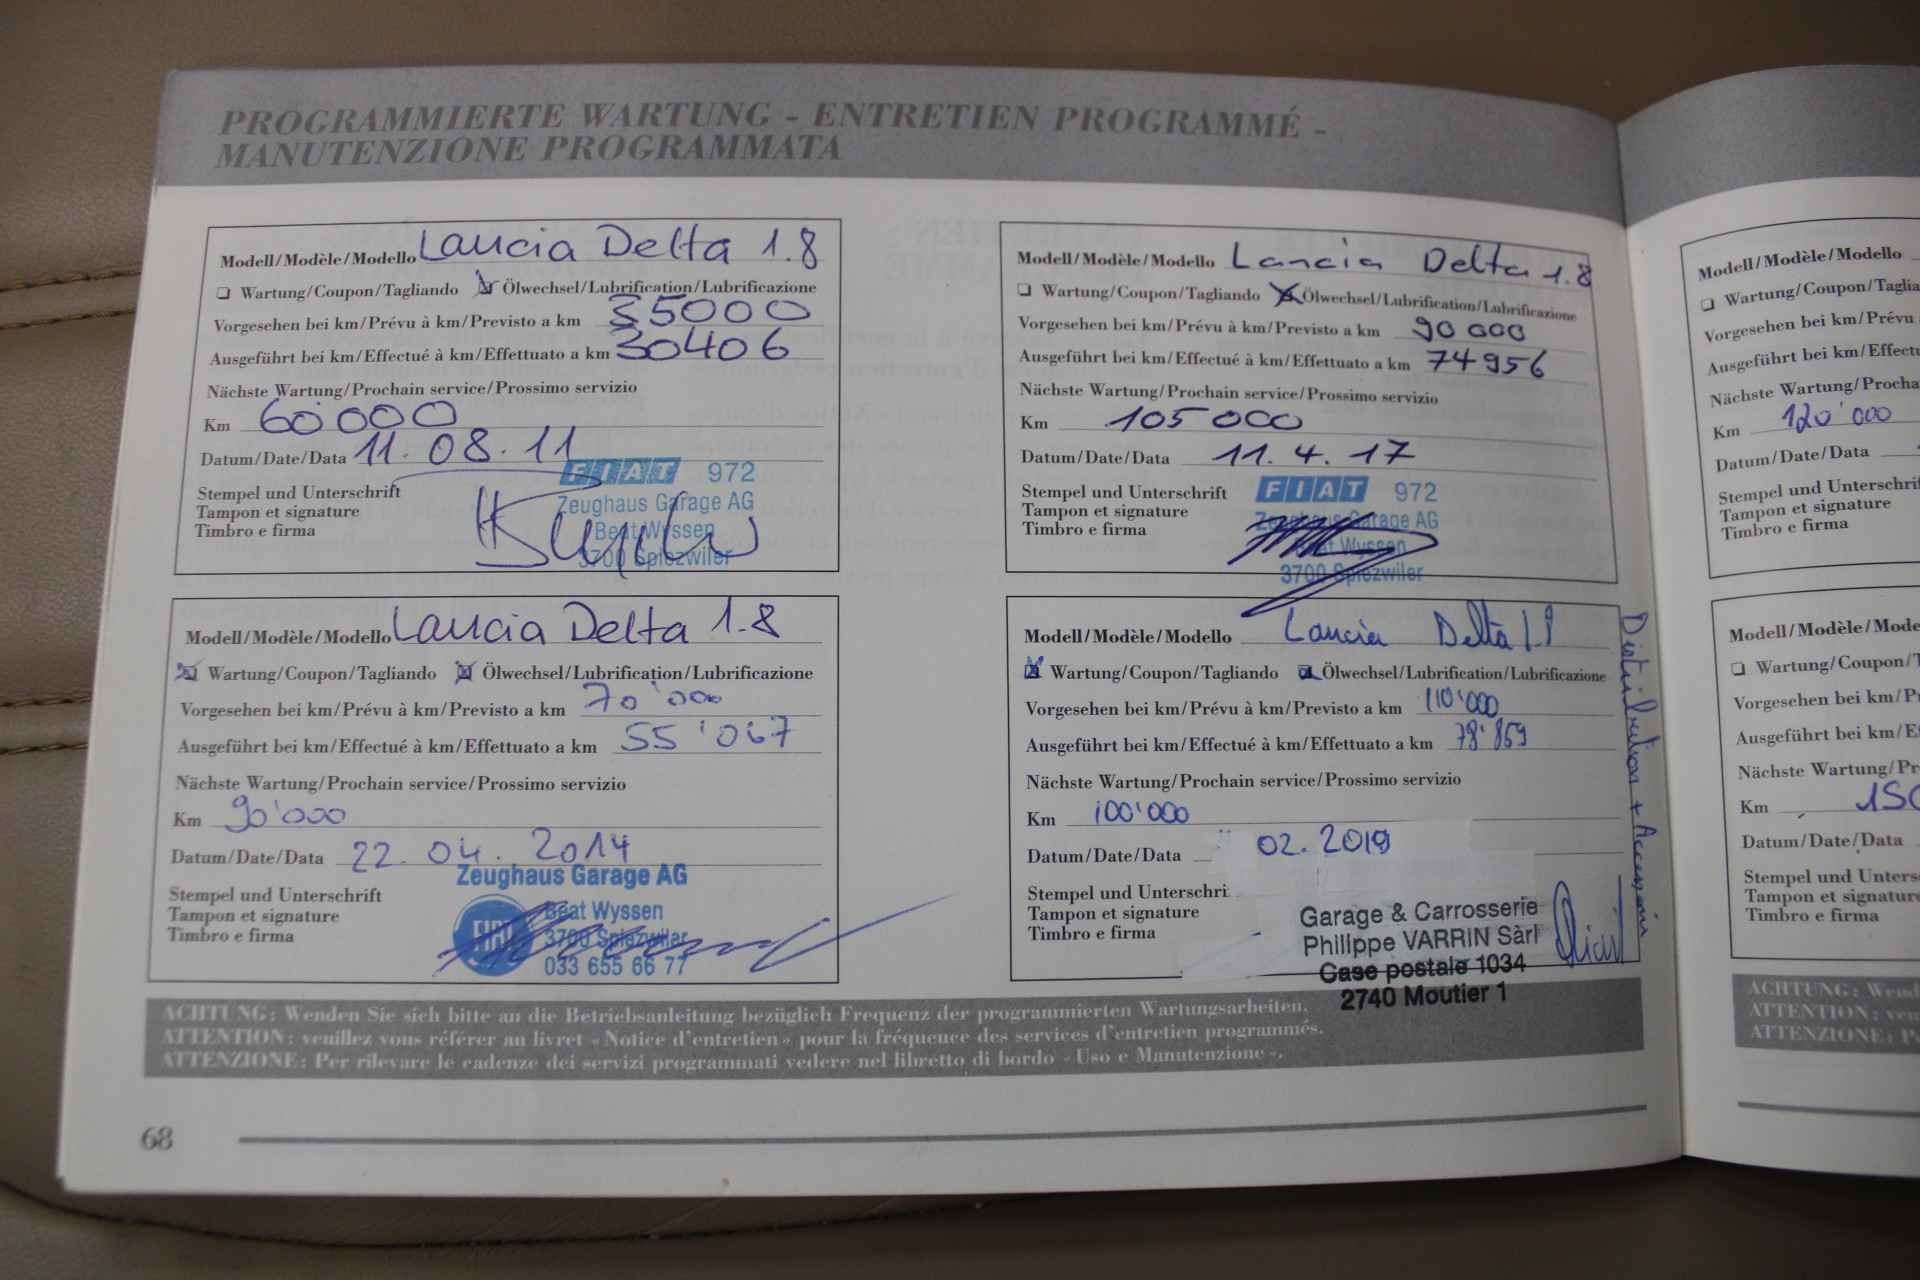 PROGRAMMIERTE WARTUNG - ENTRETIEN PROGRAMMÉ -
MANUTENZIONE PROGRAMMATA
Modell/Modèle/Modello Lancia Delta 1.8
Wartung/Coupon/Tagliando Ölwechsel/Lubrification/Lubrificazione
Vorgesehen bei km/Prévu à km/Previsto a km 35000
Ausgeführt bei km/Effectué à km/Effettuato a km 30406
Nächste Wartung/Prochain service/Prossimo servizio
Km 60000
Datum/Date/Data 11.08.11
Stempel und Unterschrift
Tampon et signature
Timbro e firma
FIAT 972
Zeughaus Garage AG
Beat Wyssen
3700 Spiezwiler
Modell/Modèle/Modello Lancia Delta 1.8
Wartung/Coupon/Tagliando Ölwechsel/Lubrification/Lubrificazione
Vorgesehen bei km/Prévu à km/Previsto a km 90000
Ausgeführt bei km/Effectué à km/Effettuato a km 74956
Nächste Wartung/Prochain service/Prossimo servizio
Km 105000
Datum/Date/Data 11.4.17
Stempel und Unterschrift
Tampon et signature
Timbro e firma
FIAT 972
Zeughaus Garage AG
Beat Wyssen
3700 Spiezwiler
Modell/Modèle/Modello Lancia Delta 1.8
Wartung/Coupon/Tagliando Ölwechsel/Lubrification/Lubrificazione
Vorgesehen bei km/Prévu à km/Previsto a km 70'000
Ausgeführt bei km/Effectué à km/Effettuato a km 55'067
Nächste Wartung/Prochain service/Prossimo servizio
Km 90'000
Datum/Date/Data 22.04.2014
Stempel und Unterschrift
Tampon et signature
Timbro e firma
Zeughaus Garage AG
FIAT
Beat Wyssen
3700 Spiezwiler
033 655 66 77
Modell/Modèle/Modello Lancia Delta 1.8
Wartung/Coupon/Tagliando Ölwechsel/Lubrification/Lubrificazione
Vorgesehen bei km/Prévu à km/Previsto a km 110'000
Ausgeführt bei km/Effectué à km/Effettuato a km 78'859
Nächste Wartung/Prochain service/Prossimo servizio
Km 100'000
Datum/Date/Data 02.2019
Stempel und Unterschri
Tampon et signature
Timbro e firma
Garage & Carrosserie
Philippe VARRIN Sàrl
Case postale 1034
2740 Moutier 1
Distribution + Accessoire
ACHTUNG: Wenden Sie sich bitte an die Betriebsanleitung bezüglich Frequenz der programmierten Wartungsarbeiten.
ATTENTION: veuillez vous référer au livret «Notice d'entretien» pour la fréquence des services d'entretien programmés.
ATTENZIONE: Per rilevare le cadenze dei servizi programmati vedere nel libretto di bordo «Uso e Manutenzione».
68
Modell/Modèle/Modello
Wartung/Coupon/Taglia
Vorgesehen bei km/Prévu
Ausgeführt bei km/Effectu
Nächste Wartung/Procha
Km 120'000
Datum/Date/Data
Stempel und Unterschrif
Tampon et signature
Timbro e firma
Modell/Modèle/Mode
Wartung/Coupon/T
Vorgesehen bei km/Pr
Ausgeführt bei km/E
Nächste Wartung/Pr
Km 150
Datum/Date/Data
Stempel und Unters
Tampon et signatur
Timbro e firma
ACHTUNG: Wend
ATTENTION: veu
ATTENZIONE: P